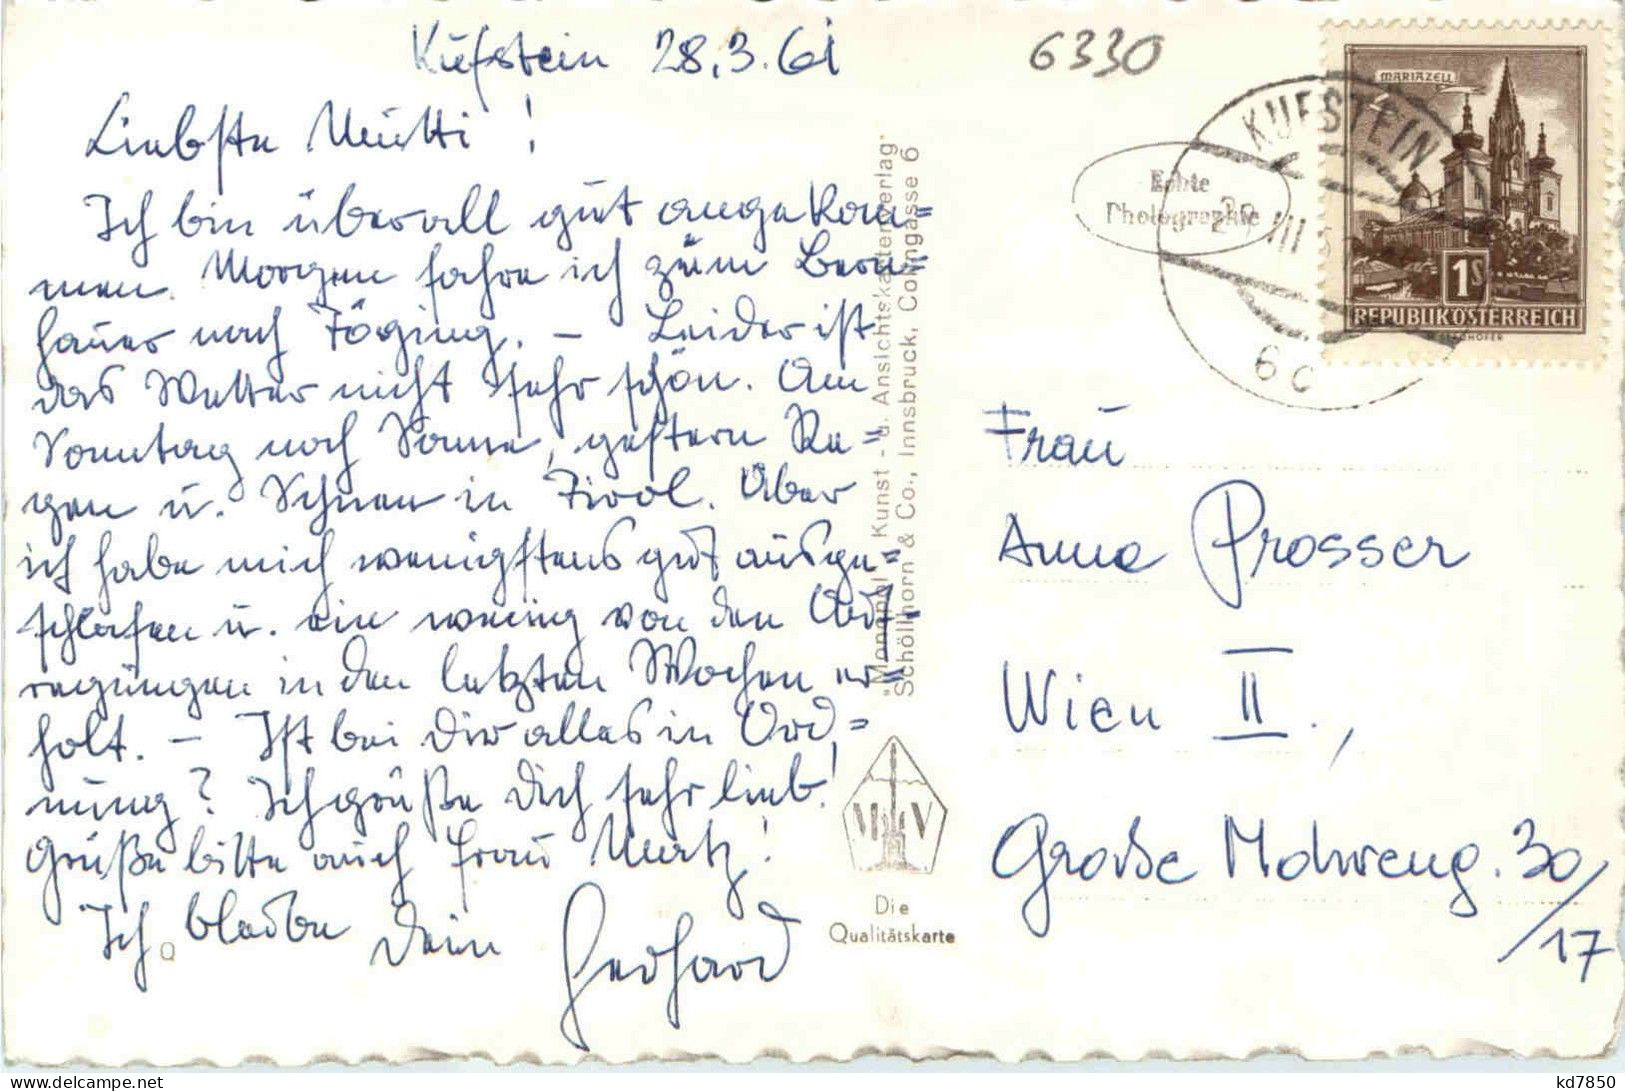 Kufstein 28.3.61
6330
Liebste Mutti !
Ich bin überall gut angekom=
men. Morgen fahre ich zum Bern=
hauer nach Töging. – Leider ist
das Wetter nicht sehr schön. Am
Sonntag noch Sonne, gestern Re=
gen u. Schnee in Tirol. Aber
ich habe mich wenigstens gut ausge=
schlafen u. ein wenig von den Auf=
regungen in den letzten Wochen er=
holt. – Ist bei Dir alles in Ord=
nung? Ich grüße Dich sehr lieb!
Grüße bitte auch Frau Matz!
Ich bleibe Dein Gerhard
"Monopol" Kunst- u. Ansichtskartenverlag
Schöllhorn & Co., Innsbruck, Colingasse 6
M V
Die
Qualitätskarte
Echte
Photographie
KUFSTEIN
28 III
MARIAZELL
1S
REPUBLIK ÖSTERREICH
Frau
Anna Prosser
Wien II.,
Große Mohreng. 30/17
kd7850